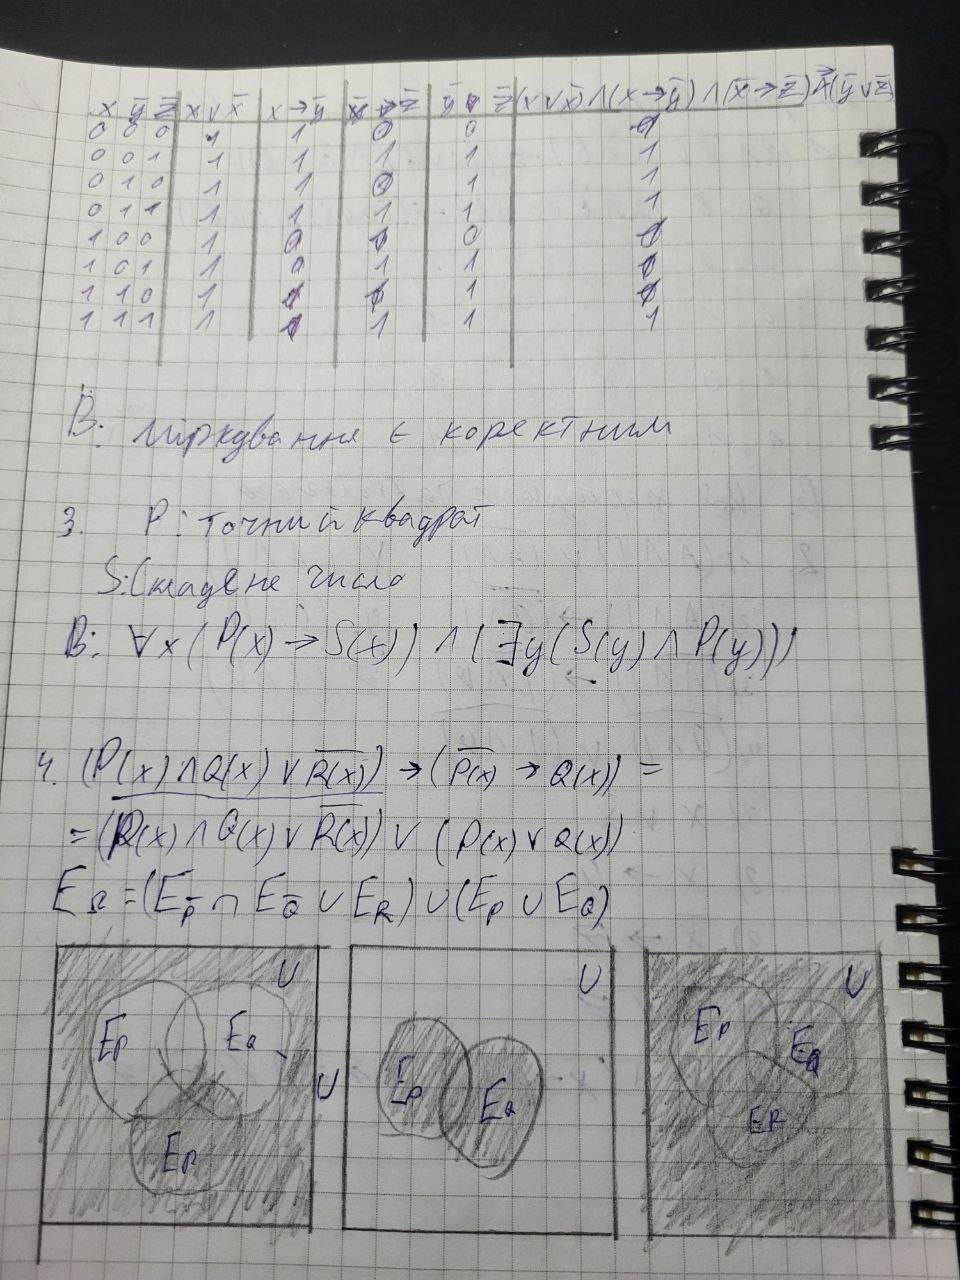 x ȳ z̄ x ∨ x̄ x → ȳ x̄ → z̄ ȳ ∨ z̄ (x ∨ x̄) ∧ (x → ȳ) ∧ (x̄ → z̄) → (ȳ ∨ z̄)
0 0 0 1 1 0 0
0 0 1 1 1 1 1 1
0 1 0 1 1 0 1 1
0 1 1 1 1 1 1 1
1 0 0 1 0 0
1 0 1 1 0 1 1
1 1 0 1 1
1 1 1 1 1 1 1
В: міркування є коректним
3. P: точний квадрат
S: Складене число
В: ∀x(P(x) → S(x)) ∧ (∃y(S(y) ∧ P(y)))
4. (P(x) ∧ Q(x) ∨ R̅(x̅)) → (P̅(x) → Q(x)) =
= (P(x) ∧ Q(x) ∨ R̅(x̅)) ∨ (P(x) ∨ Q(x))
E = (E_P̄ ∩ E_Q̄ ∪ E_R) ∪ (E_P ∪ E_Q)
U U U
E_P E_Q E_P E_Q
E_P E_Q U
E_R E_R